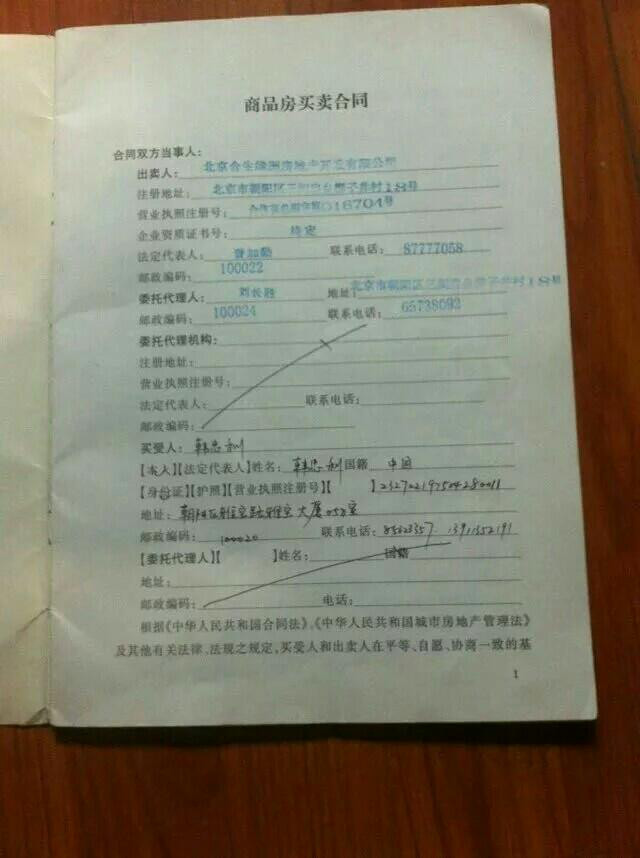 商品房买卖合同
合同双方当事人:
出卖人: 北京合生绿洲房地产开发有限公司
注册地址: 北京市朝阳区三间房台 18号
营业执照注册号: 016704号
企业资质证书号: 待定
法定代表人: 曾加勤 联系电话: 87777058
邮政编码: 100022
委托代理人: 刘长胜 地址: 北京市朝阳区三间房 村18号
邮政编码: 100024 联系电话: 65738092
委托代理机构:
注册地址:
营业执照注册号:
法定代表人: 联系电话:
邮政编码:
买受人: 韩忠利
【本人】【法定代表人】姓名: 韩忠利 国籍 中国
【身份证】【护照】【营业执照注册号】【 】232702197504280011
地址: 朝阳区雅宝路雅宝大厦 室
邮政编码: 100020 联系电话:
【委托代理人】【 】姓名: 国籍
地址:
邮政编码: 电话:
根据《中华人民共和国合同法》、《中华人民共和国城市房地产管理法》
及其他有关法律、法规之规定,买受人和出卖人在平等、自愿、协商一致的基
1